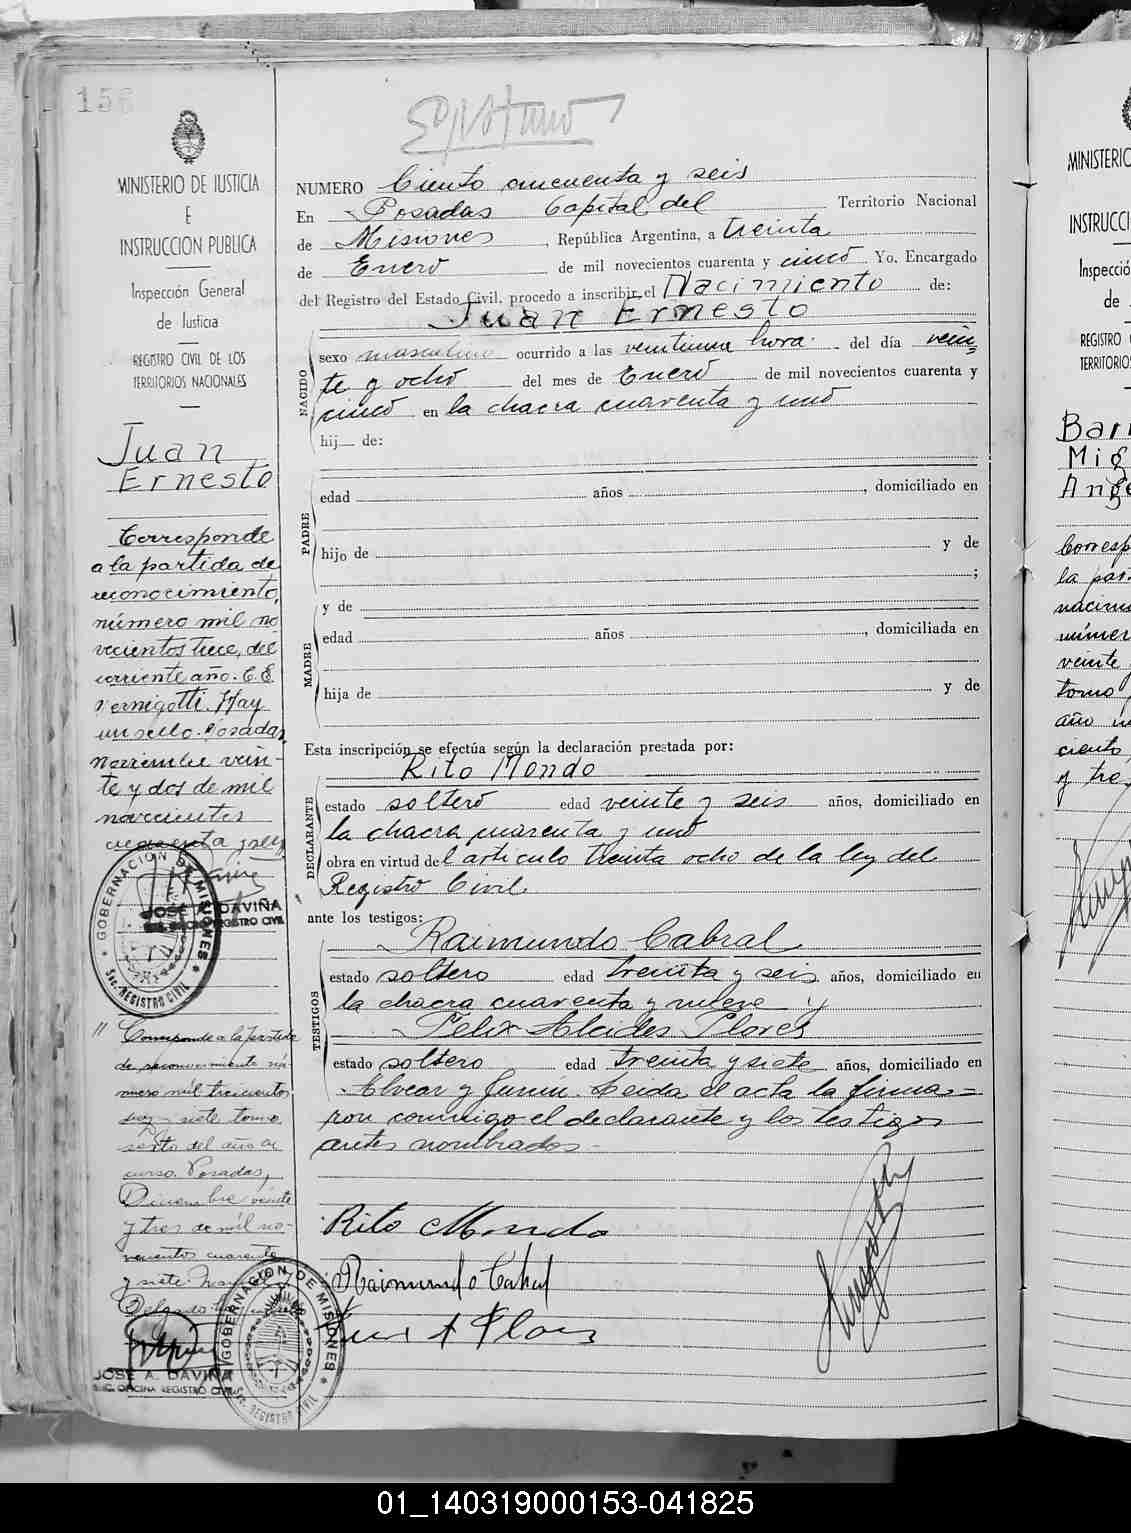 156
MINISTERIO DE JUSTICIA
E
INSTRUCCION PUBLICA
Inspección General
de Justicia
REGISTRO CIVIL DE LOS
TERRITORIOS NACIONALES
Juan
Ernesto
Corresponde
a la partida de
reconocimiento,
número mil no
vecientos trece, del
corriente año. C.E.
Vernigotti. Hay
un sello. Posadas,
noviembre vein-
te y dos de mil
novecientos
cuarenta y seis
GOBERNACION DE MISIONES
SEC. REGISTRO CIVIL
JOSE A. DAVIÑA
REGISTRO CIVIL
" Corresponde a la partida
de reconocimiento nú
mero mil trescientos
siete tomo
sexto del año en
curso. Posadas,
Diciembre veinte
y tres de mil no-
vecientos cuarenta
y siete.
Delgado
GOBERNACION DE MISIONES
SEC. REGISTRO CIVIL
JOSE A. DAVIÑA
OFICINA REGISTRO CIVIL
NUMERO Ciento cincuenta y seis
En Posadas Capital del Territorio Nacional
de Misiones, República Argentina, a treinta
de Enero de mil novecientos cuarenta y cinco Yo, Encargado
del Registro del Estado Civil, procedo a inscribir el Nacimiento de:
Juan Ernesto
NACIDO
sexo masculino ocurrido a las veintiuna hora. del día vein=
te y ocho del mes de Enero de mil novecientos cuarenta y
cinco en la chacra cuarenta y uno
hij de:
PADRE
edad años, domiciliado en
hijo de y de
;
MADRE
y de
edad años, domiciliada en
hija de y de
Esta inscripción se efectúa según la declaración prestada por:
Rito Mondo
DECLARANTE
estado soltero edad veinte y seis años, domiciliado en
la chacra cuarenta y uno
obra en virtud del artículo treinta ocho de la ley del
Registro Civil
ante los testigos:
Raimundo Cabral
TESTIGOS
estado soltero edad treinta y seis años, domiciliado en
la chacra cuarenta y nueve y
Felix Alcides Flores
estado soltero edad treinta y siete años, domiciliado en
Alvear y Junín. Leida el acta la firma=
ron conmigo el declarante y los testigos
antes nombrados -
Rito Mondo
Raimundo Cabral
A Flores
MINISTERIO
INSTRUCCI
Inspecció
de
REGISTRO
TERRITORIOS
Bar
Mig
Ange
Corresp
la par
nacimi
númer
veinte
tomo
año
ciento
y tre
01_140319000153-041825